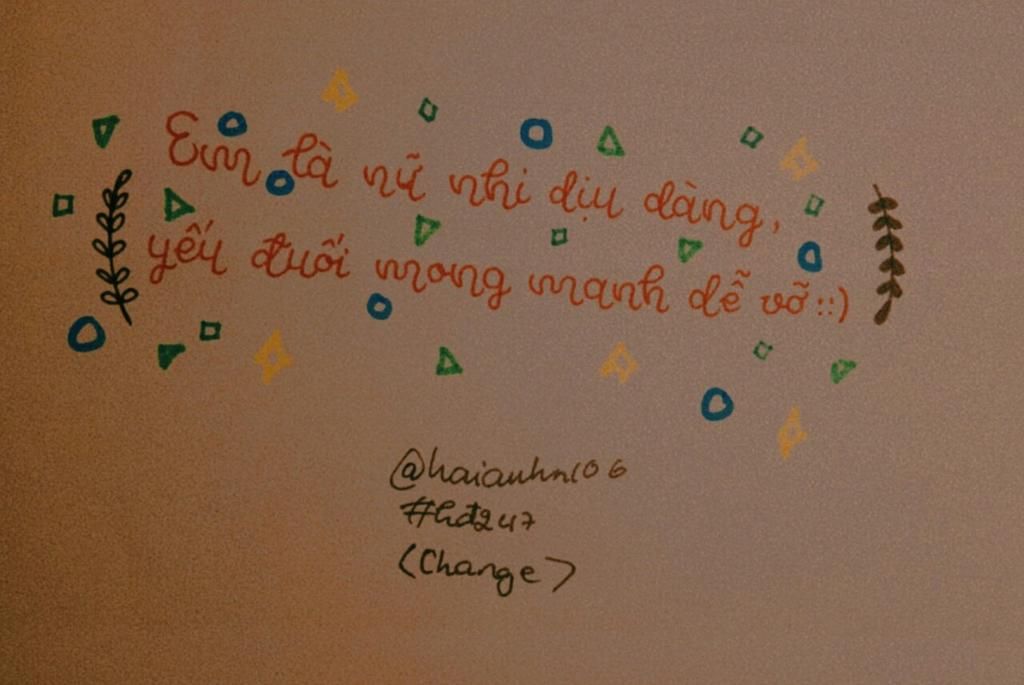 Em là nữ nhi dịu dàng,
yếu đuối mong manh dễ vỡ ::)
@haianhn106
#hđ247
(Change)